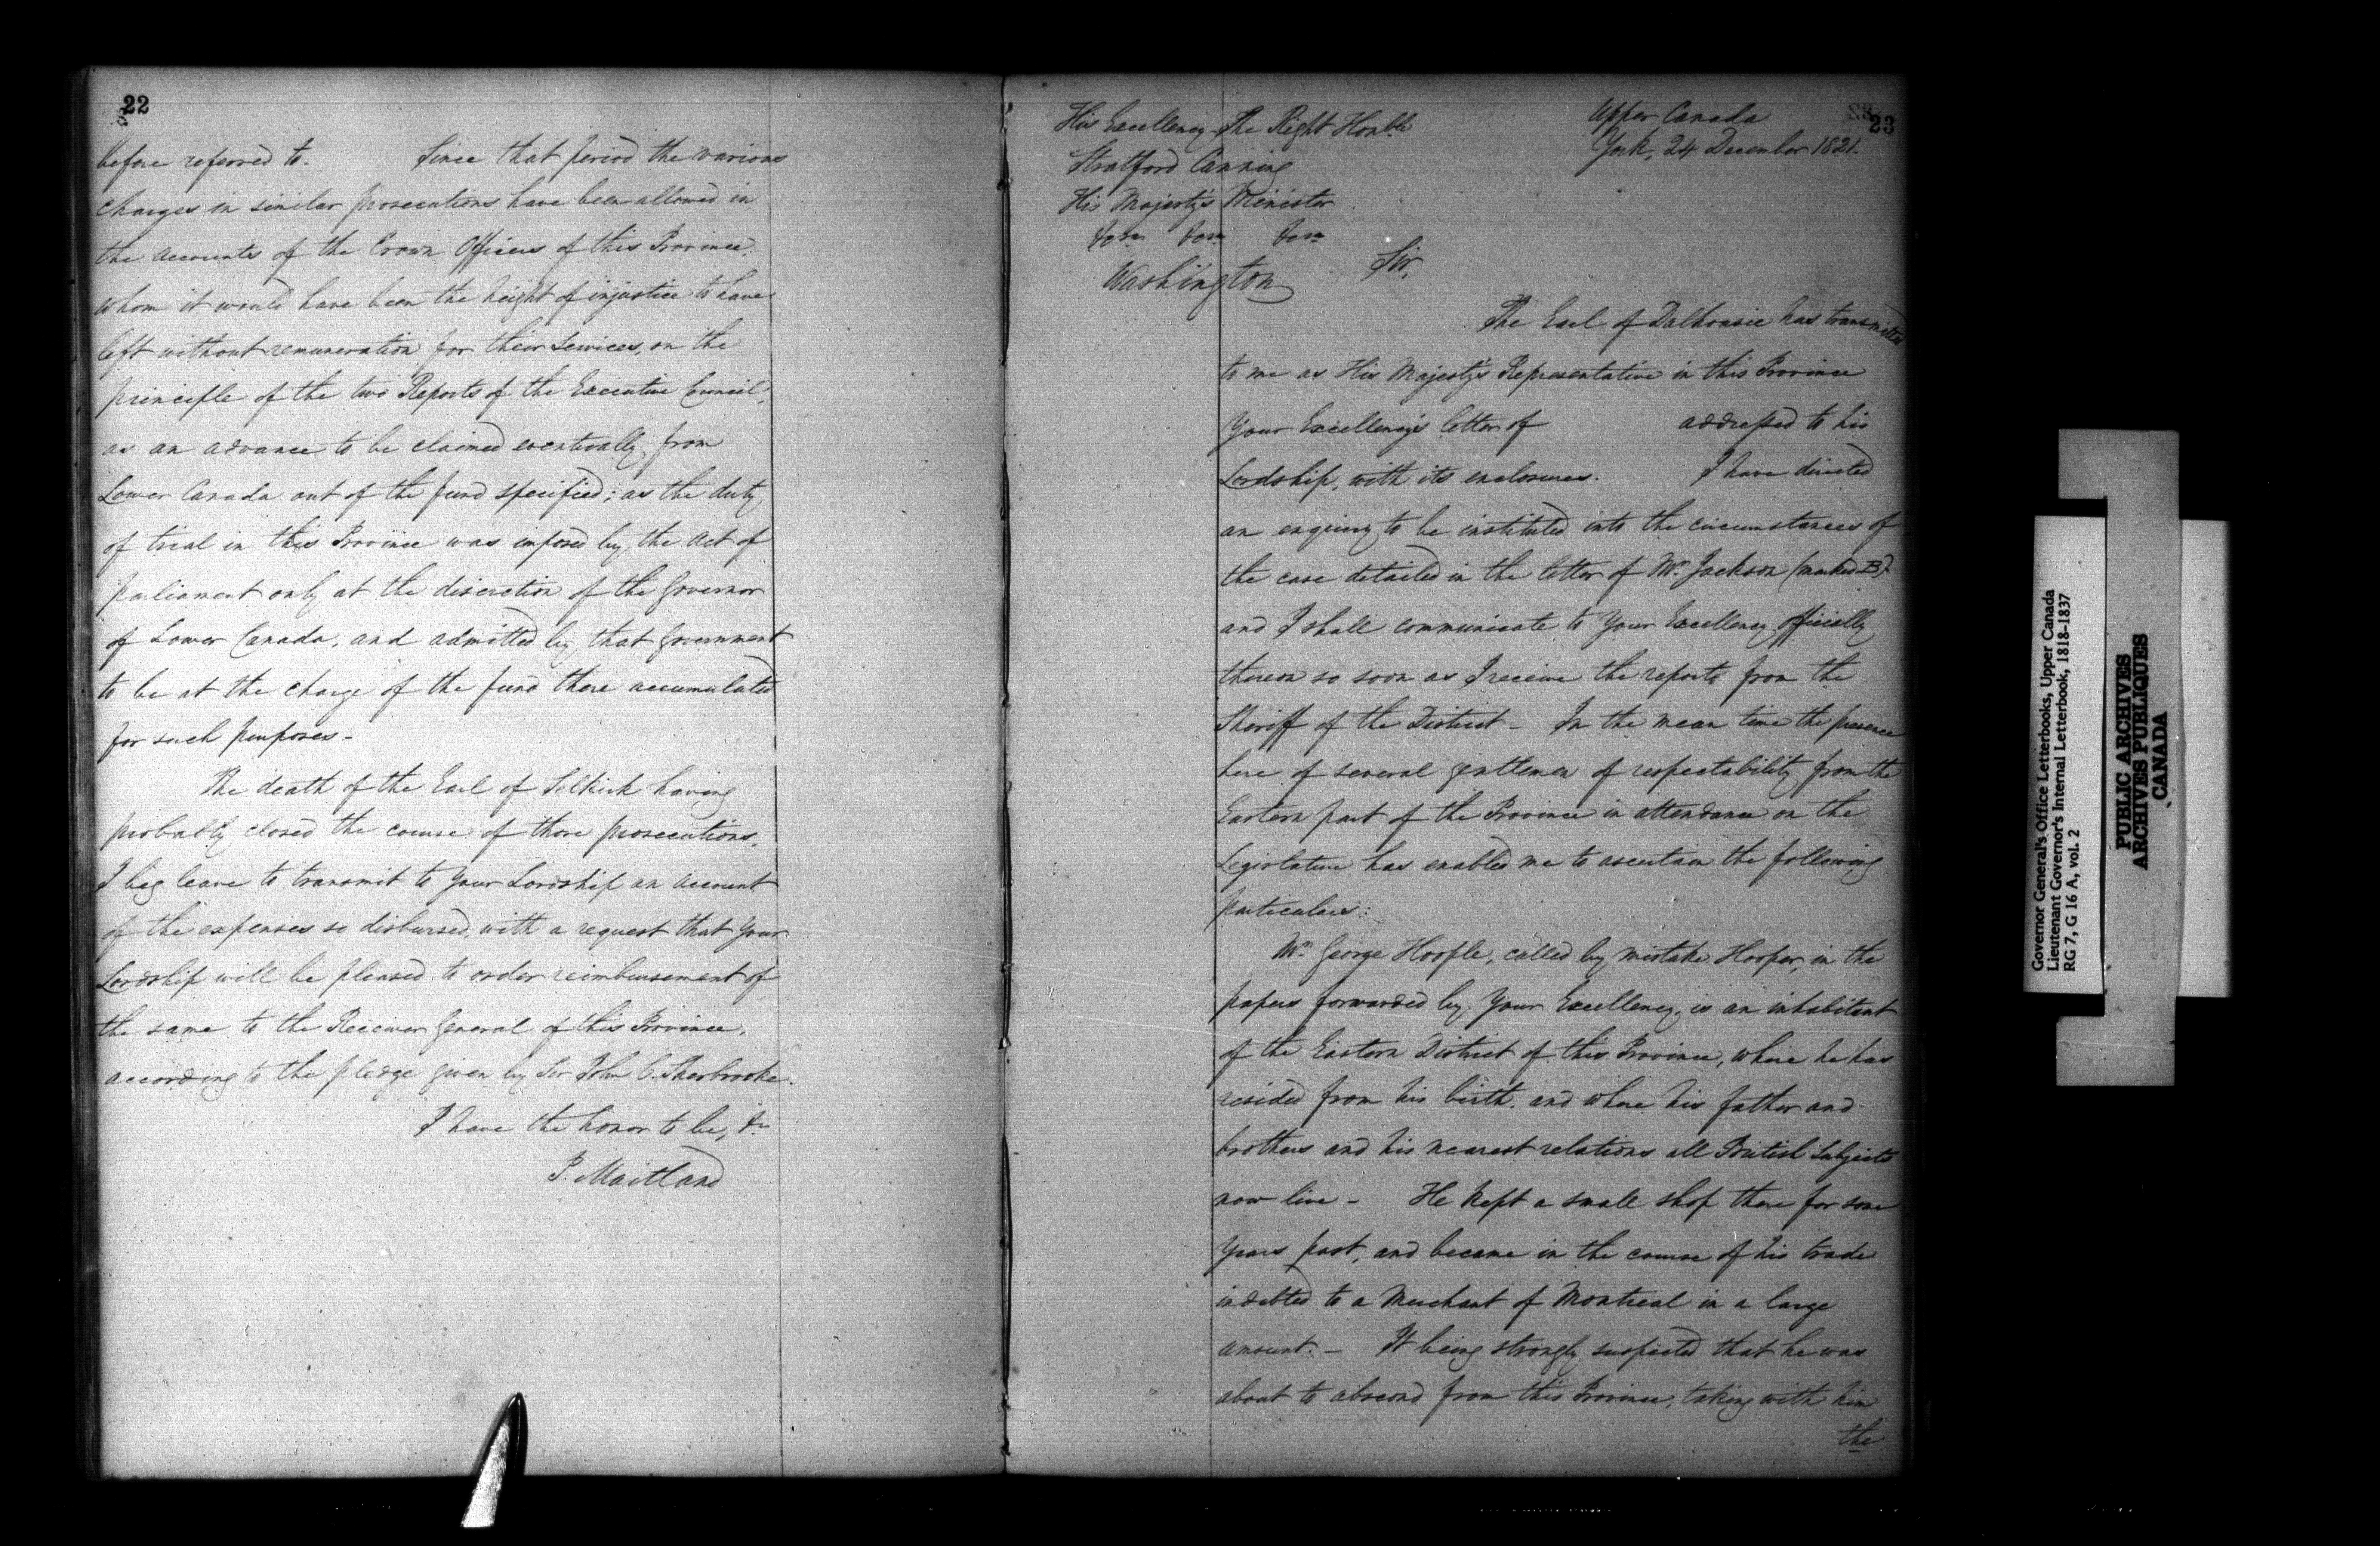 22
before referred to. Since that period the various
charges in similar prosecutions have been allowed in
the accounts of the Crown Officers of this Province:
whom it would have been the height of injustice to have
left without remuneration for their services, on the
principle of the two Reports of the Executive Council,
as an advance to be claimed eventually from
Lower Canada out of the fund specified; as the duty
of trial in this Province was imposed by the Act of
parliament only at the discretion of the Governor
of Lower Canada, and admitted by that Government
to be at the charge of the fund there accumulated
for such purposes -
The death of the Earl of Selkirk having
probably closed the course of those prosecutions,
I beg leave to transmit to Your Lordship an account
of the expenses so disbursed, with a request that Your
Lordship will be pleased to order reimbursement of
the same to the Receiver General of this Province,
according to the pledge given by Sir John C. Sherbrooke.
I have the honor to be, &c
P. Maitland
23
Upper Canada
York, 24 December 1821.
His Excellency The Right Honble
Stratford Canning
His Majesty's Minister
Washington
Sir,
The Earl of Dalhousie has transmitted
to me as His Majesty's Representative in this Province
Your Excellency's letter of addressed to his
Lordship, with its enclosures. I have directed
an enquiry to be instituted into the circumstances of
the case detailed in the letter of Mr. Jackson (marked B).
and I shall communicate to Your Excellency officially
thereon so soon as I receive the reports from the
Sheriff of the District - In the mean time the presence
here of several gentlemen of respectability from the
Eastern part of the Province in attendance on the
Legislature has enabled me to ascertain the following
particulars:
Mr. George Hoople, called by mistake Hooper, in the
papers forwarded by Your Excellency, is an inhabitant
of the Eastern District of this Province, where he has
resided from his birth, and where his father and
brothers and his nearest relations all British Subjects
now live - He kept a small shop there for some
Years past, and became in the course of his trade
indebted to a Merchant of Montreal in a large
amount. - It being strongly suspected that he was
about to abscond from this Province, taking with him
the
Governor General's Office Letterbooks, Upper Canada
Lieutenant Governor's Internal Letterbook, 1818-1837
RG 7, G 16 A, vol. 2
PUBLIC ARCHIVES
ARCHIVES PUBLIQUES
CANADA